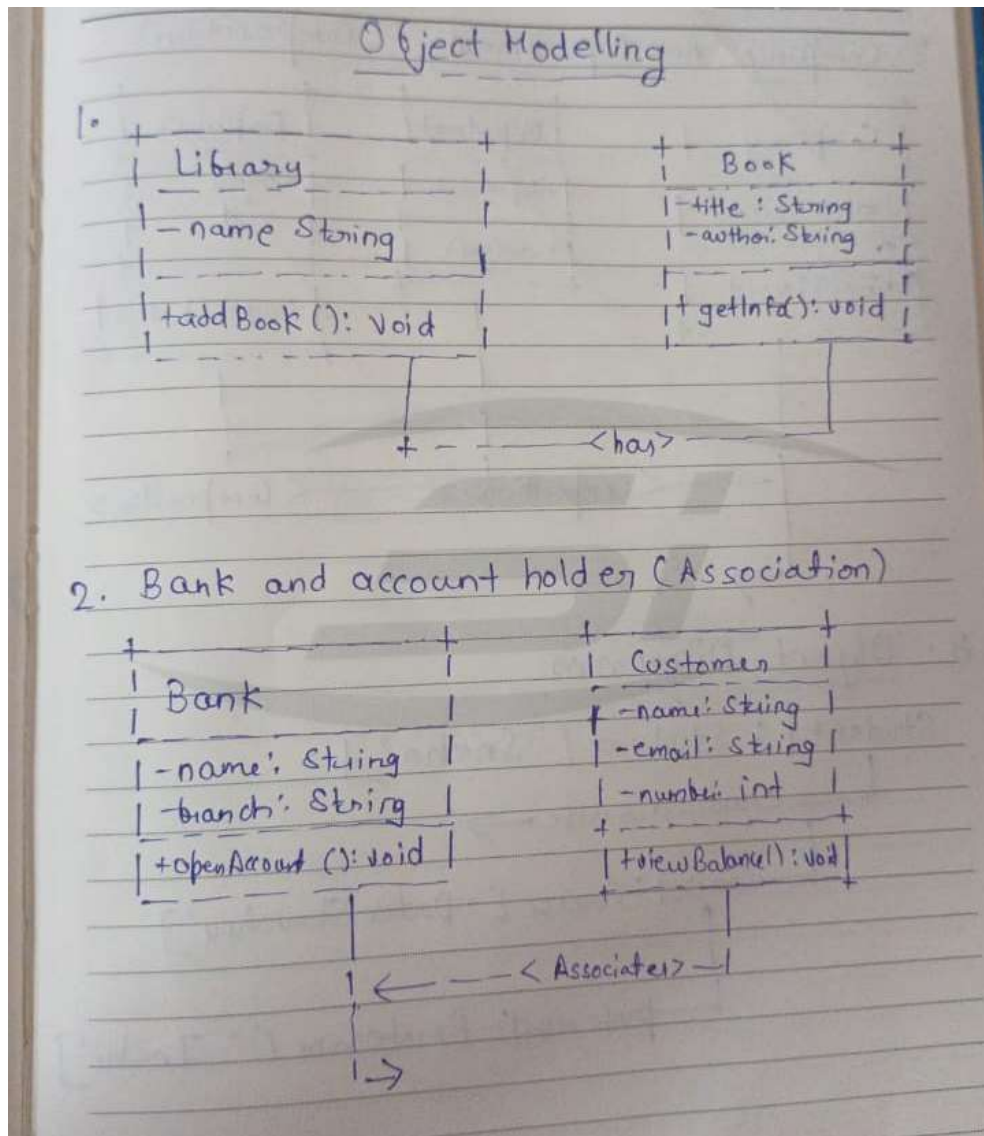 Object Modelling
1.
Library
- name String
+addBook (): Void
Book
-title : String
-author: String
+ getInfo(): void
<has>
2. Bank and account holder (Association)
Bank
-name: String
-branch: String
+openAccount (): void
Customer
-name: String
-email: String
-number: int
+viewBalance(): void
< Associates>